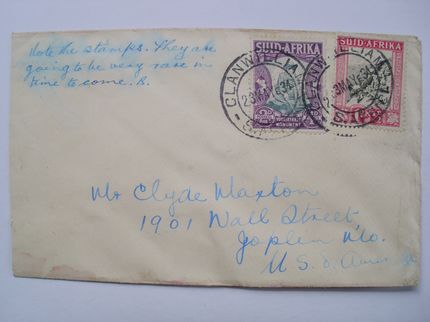 Note the stamps. They are
going to be very rare in
time to come. B.
SUID-AFRIKA
SUID-AFRIKA
CLANWILLIAM
CLANWILLIAM
VOORTREKKER
MONUMENT
Mr Clyde Maxton
1901 Wall Street,
Joplin Mo.
U.S. d.